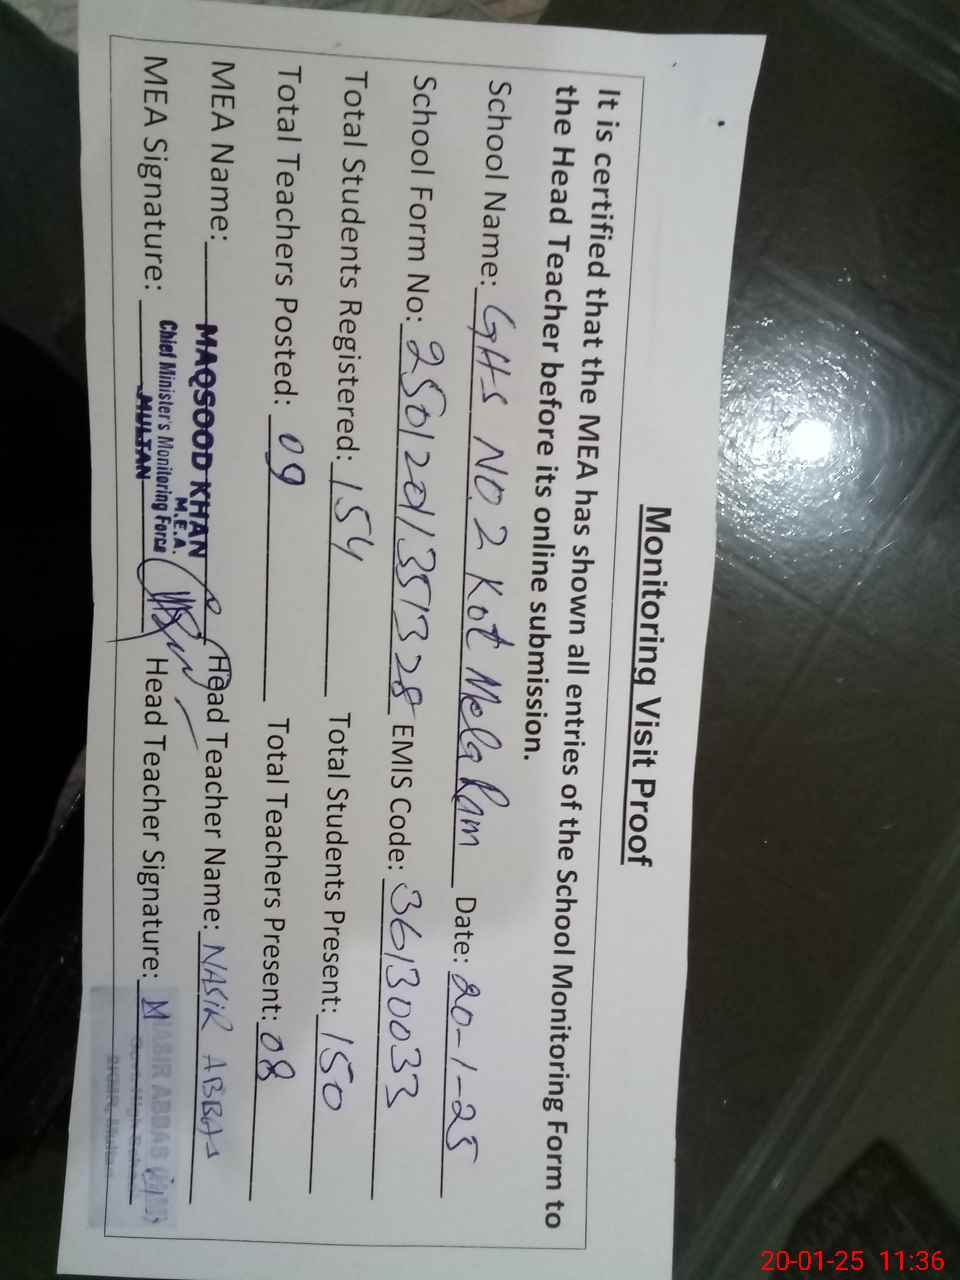 Monitoring Visit Proof
It is certified that the MEA has shown all entries of the School Monitoring Form to
the Head Teacher before its online submission.
School Name: GHS NO 2 Kot Mela Ram Date: 20-1-25
School Form No: 2501201351328 EMIS Code: 36130033
Total Students Registered: 154 Total Students Present: 150
Total Teachers Posted: 09 Total Teachers Present: 08
MEA Name: MAQSOOD KHAN Head Teacher Name: NASIR ABBAS
M.E.A.
Chief Minister's Monitoring Force
MULTAN
MEA Signature: Head Teacher Signature:
NASIR ABBAS
20-01-25 11:36